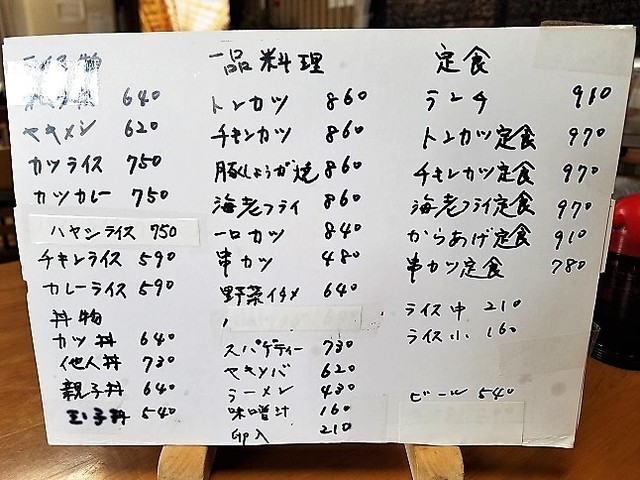 ライス物
640
ヤキメシ 620
カツライス 750
カツカレー 750
ハヤシライス 750
チキンライス 590
カレーライス 590
丼物
カツ丼 640
他人丼 730
親子丼 640
玉子丼 540
一品料理
トンカツ 860
チキンカツ 860
豚しょうが焼 860
海老フライ 860
一口カツ 840
串カツ 480
野菜イタメ 640
スパゲティー 730
ヤキソバ 620
ラーメン 430
味噌汁 160
卵入 210
定食
ランチ 910
トンカツ定食 970
チキンカツ定食 970
海老フライ定食 970
からあげ定食 910
串カツ定食 780
ライス中 210
ライス小 160
ビール 540